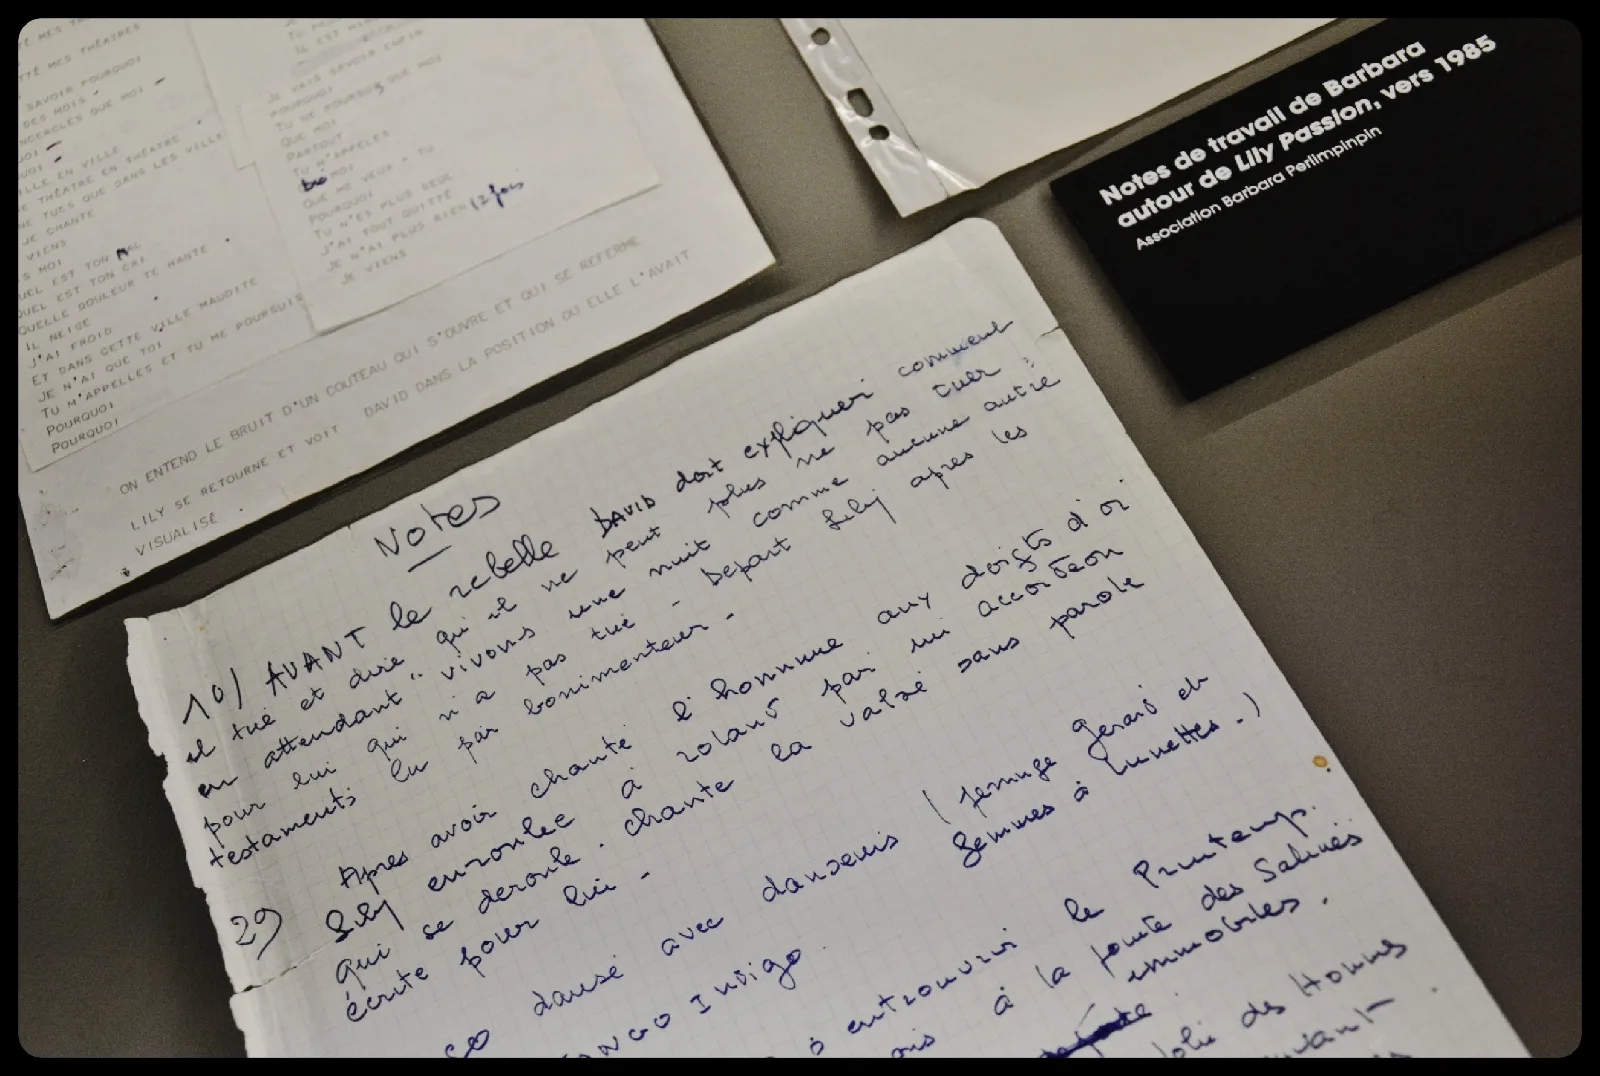 TTÉ MES THÉATRES
SAVOIR POURQUOI
DES MOIS -
ENCERCLES QUE MOI -
VILLE EN VILLE
DE THÉATRE EN THÉATRE
NE TUES QUE DANS LES VILLE
JE CHANTE
VIENS
MOI
QUEL EST TON MAL
QUEL EST TON CRI
QUELLE DOULEUR TE HANTE
IL NEIGE
J'AI FROID
ET DANS CETTE VILLE MAUDITE
JE N'AI QUE TOI
TU M'APPELLES ET TU ME POURSUIS
POURQUOI
POURQUOI
JE VAIS SAVOIR ENFIN
POURQUOI
TU NE POURSUIS QUE MOI
QUE MOI
PARTOUT
TU M'APPELES
MOI
QUE ME VEUX - TU
POURQUOI
TU N'ES PLUS SEUL
J'AI TOUT QUITTÉ
JE N'AI PLUS RIEN (2 fois
JE VIENS
ON ENTEND LE BRUIT D'UN COUTEAU QUI S'OUVRE ET QUI SE REFERME
LILY SE RETOURNE ET VOIT DAVID DANS LA POSITION OU ELLE L'AVAIT
VISUALISÉ .
Notes de travail de Barbara
autour de Lily Passion, vers 1985
Association Barbara Perlimpinpin
Notes
10) AVANT le rebelle DAVID doit expliquer comment
il tue et dire qu'il ne peut plus ne pas tuer
en attendant " vivons une nuit comme aucune autre "
pour lui qui n'a pas tué - Depart Lily apres les
testaments lu par bonimenteur -
29 Apres avoir chanté l'homme aux doigts d'or
Lily enroulée à roland par un accordeon
qui se deroule . chante la valse sans parole
écrite pour lui -
dansé avec danseurs ( Gerard en
femmes à lunettes . )
TANGO INDIGO .
à entrouvrir le Printemps .
à la pointe des Salines
immobiles .
des Hommes